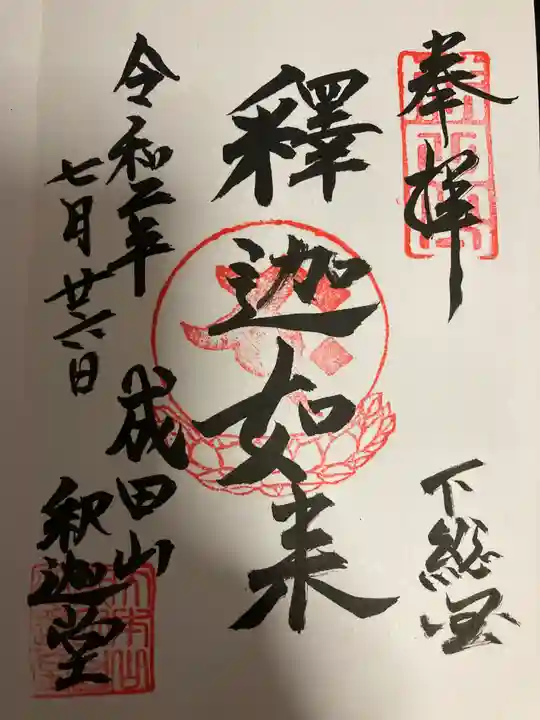 奉拝
下総国
釋迦如来
令和二年
七月廿六日
成田山
釈迦堂